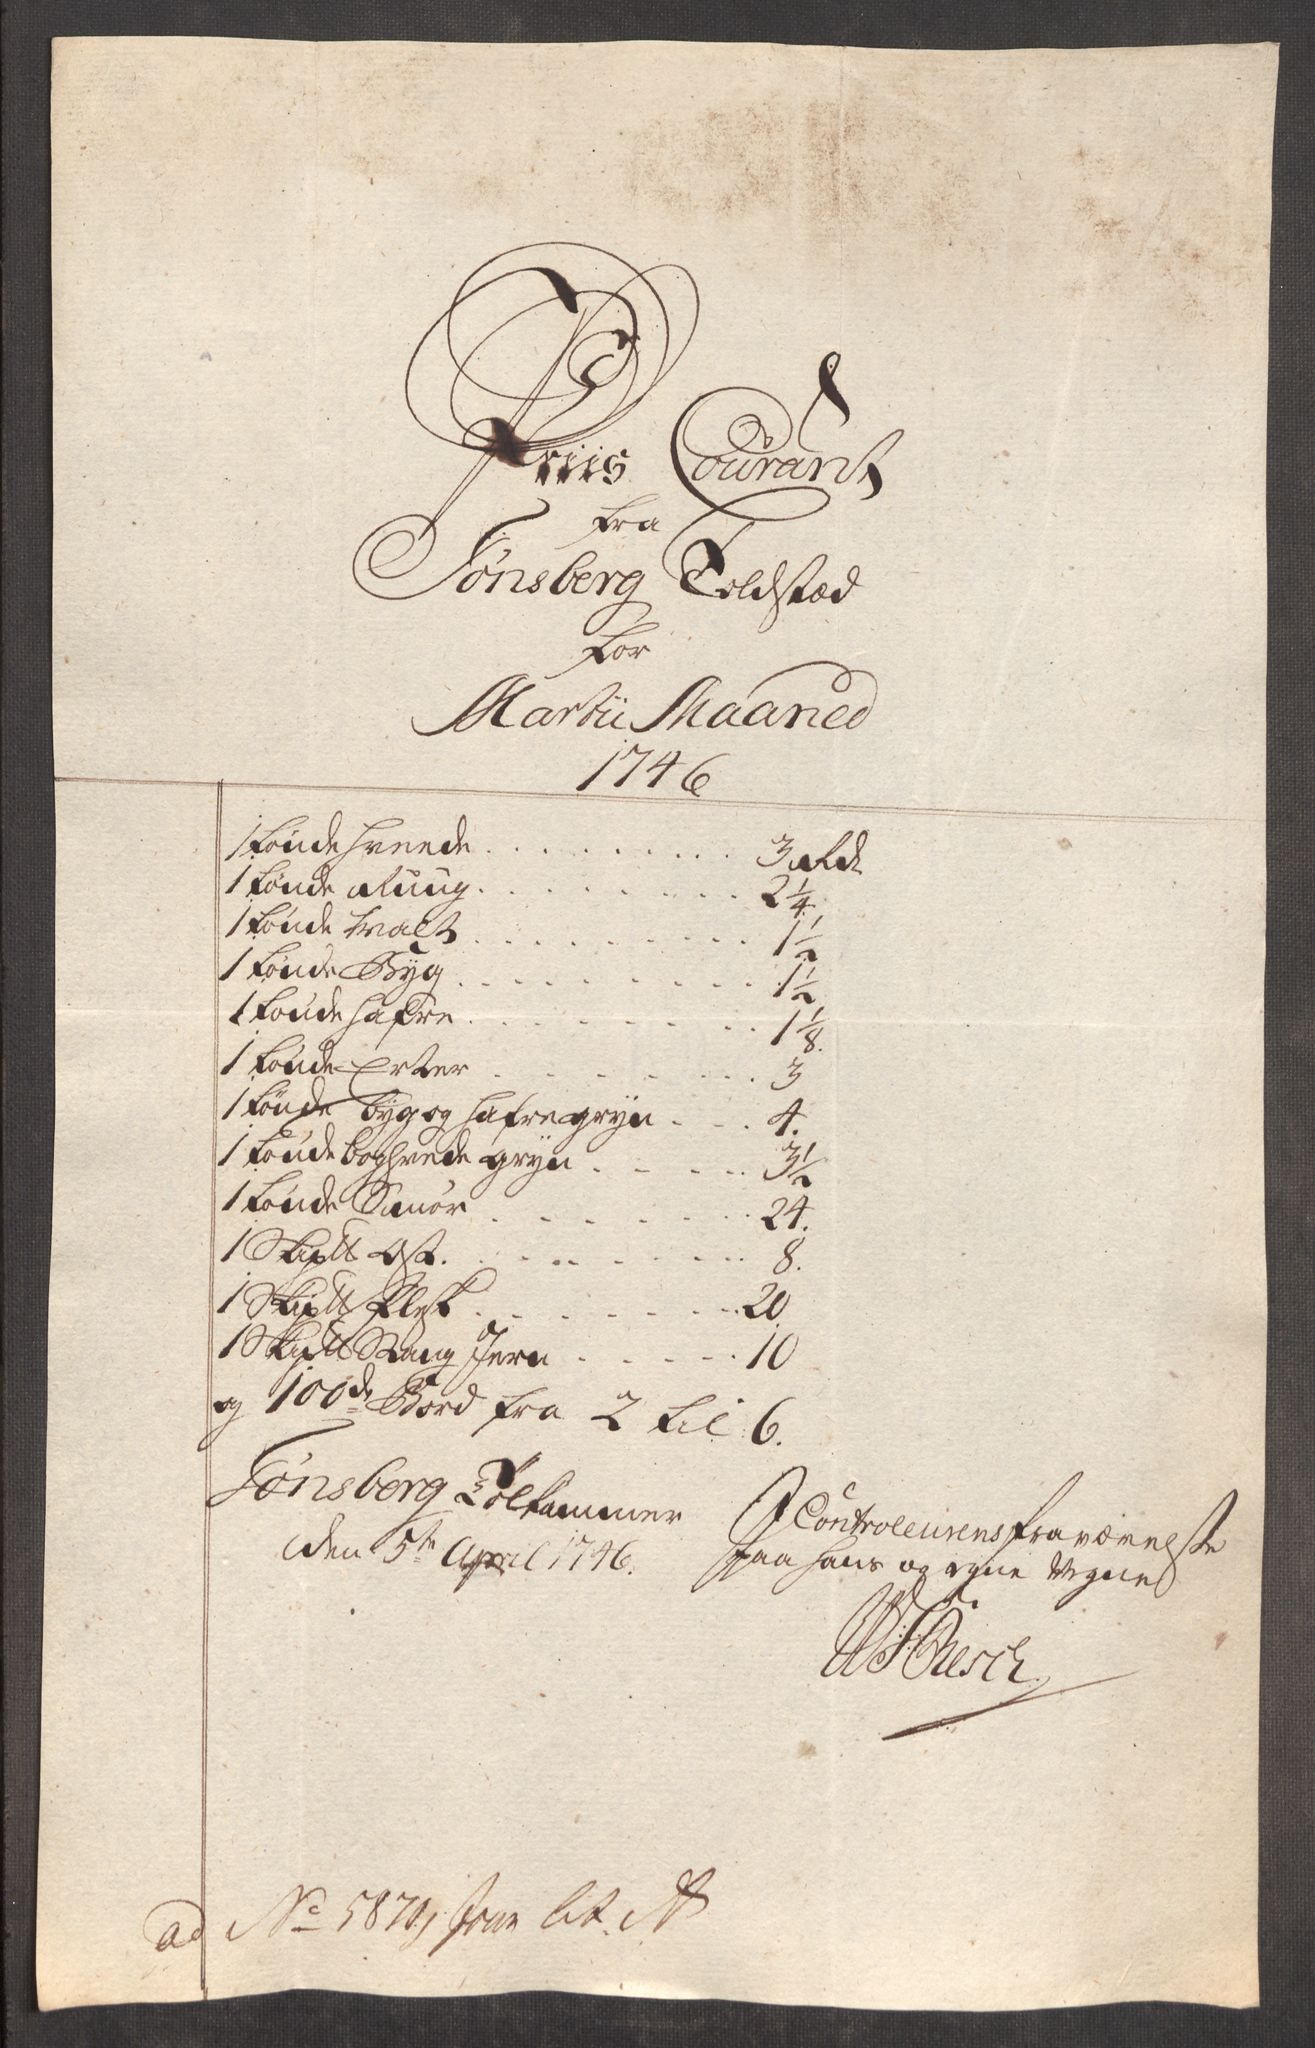 Priis Courant
fra
Tønsberg Toldstæd
for
Martii Maaned
1746
1 tønde hveede . . . . . . . . 3 Rdr
1 tønde Ruug . . . . . . . . 2 1/4
1 tønde malt . . . . . . . . 1 1/2
1 tønde Byg . . . . . . . . 1 1/2
1 tønde hafre . . . . . . . . 1 1/8.
1 tønde Erter . . . . . . . 3
1 tønde byg og hafregryn . . . . 4.
1 tønde boghvede gryn . . . . . 3 1/2
1 tønde Smør . . . . . . . 24.
1 Skip℔ Ost . . . . . . . 8.
1 Skip℔ flesk . . . . . . . 20
1 Skip℔ Stang Jern . . . . . 10
og 100de Bord fra 2 til 6.
Tønsberg Tolkammer
den 5te April 1746.
I Controleurens fraværelse
paa hans og egne Vegne
Resch
ad No 5870 Lit. A